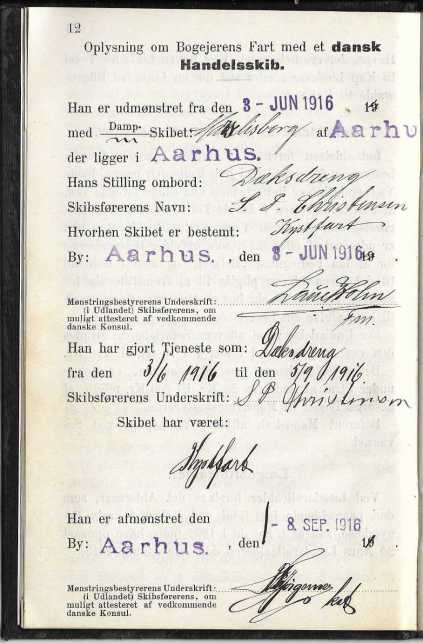 12
Oplysning om Bogejerens Fart med et dansk
Handelsskib.
Han er udmønstret fra den 3 - JUN 1916 19
med Damp- Skibet: af Aarhu
der ligger i Aarhus.
Hans Stilling ombord: Dæksdreng
Skibsførerens Navn: S. P. Christensen
Hvorhen Skibet er bestemt: Kystfart
By: Aarhus. , den 3 - JUN 1916 19
Mønstringsbestyrerens Underskrift:
(i Udlandet) Skibsførerens, om
muligt attesteret af vedkommende
danske Konsul.
Holm
fm.
Han har gjort Tjeneste som: Dæksdreng
fra den 3/6 1916 til den 5/9 1916
Skibsførerens Underskrift: S P Christensen
Skibet har været:
Kystfart
Han er afmønstret den - 8. SEP. 1916
By: Aarhus. , den 1
Mønstringsbestyrerens Underskrift:
(i Udlandet) Skibsførerens, om
muligt attesteret af vedkommende
danske Konsul.